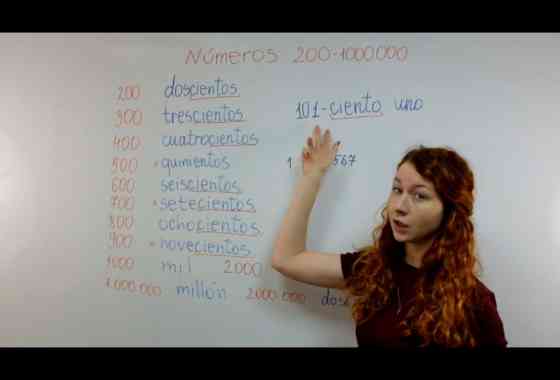 Números 200-1000000
200 doscientos
300 trescientos
400 cuatrocientos
500 • quinientos
600 seiscientos
700 • setecientos
800 ochocientos
900 • novecientos
1000 mil 2000
1.000.000 millón 2000.000
101-ciento uno
1 567